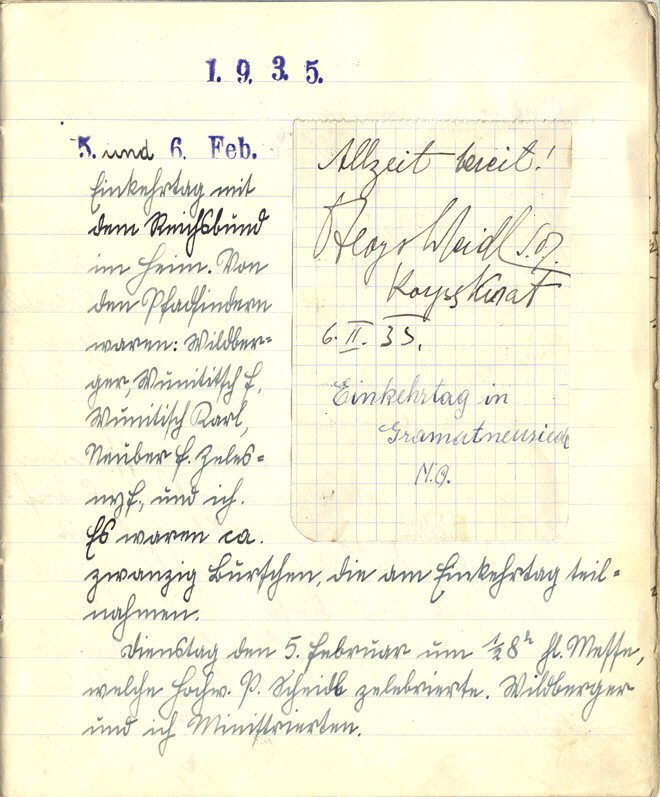 1. 9. 3. 5.
5. und 6. Feb.
Einkehrtag mit
dem Reichsbund
im Heim. Von
den Pfadfindern
waren: Wildber-
ger, Wunitisch F,
Wunitisch Karl,
Neuber F. Zeles-
ny F., und ich.
Es waren ca.
zwanzig Burschen, die am Einkehrtag teil-
nahmen.
Dienstag den 5. Februar um ½8h hl. Messe,
welche Hochw. P. Scheidl zelebrierte. Wildberger
und ich Ministrierten.
Allzeit bereit!
S.J.
6. II. 35.
Einkehrtag in
Gramatneusiedl
N.Ö.